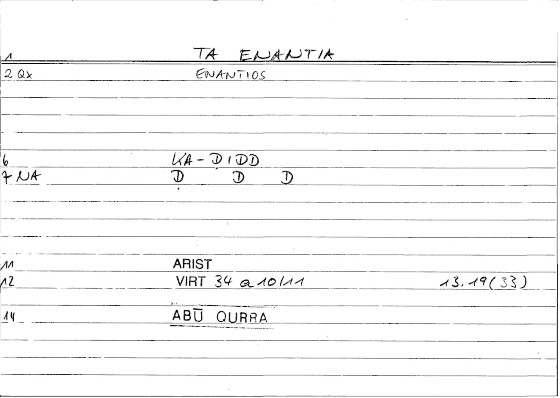 1 TA ENANTIA
2 Qx ENANTIOS
6 KA-ḌIDD
7 NA Ḍ D D
11 ARIST
12 VIRT 34 a 10/11 13.19(33)
14 ABŪ QURRA